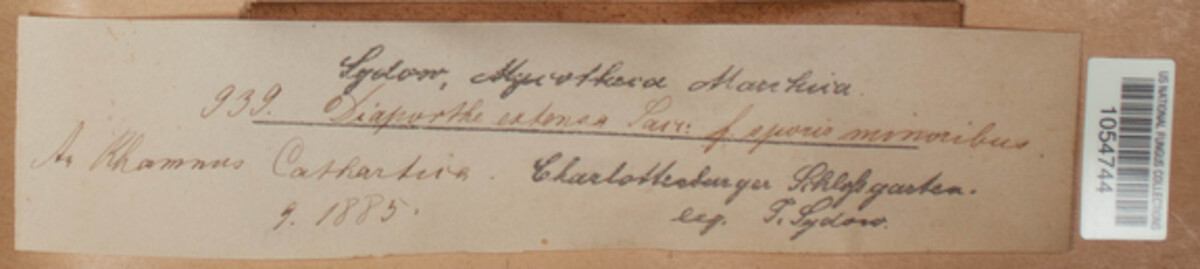 Sydow, Mycotheca Marchica.
939. Diaporthe extensa Sacc. f. sporis minoribus.
An Rhamnus Cathartica. Charlottenburger Schloßgarten.
9. 1885. leg. P. Sydow.
US NATIONAL FUNGUS COLLECTIONS
1054744